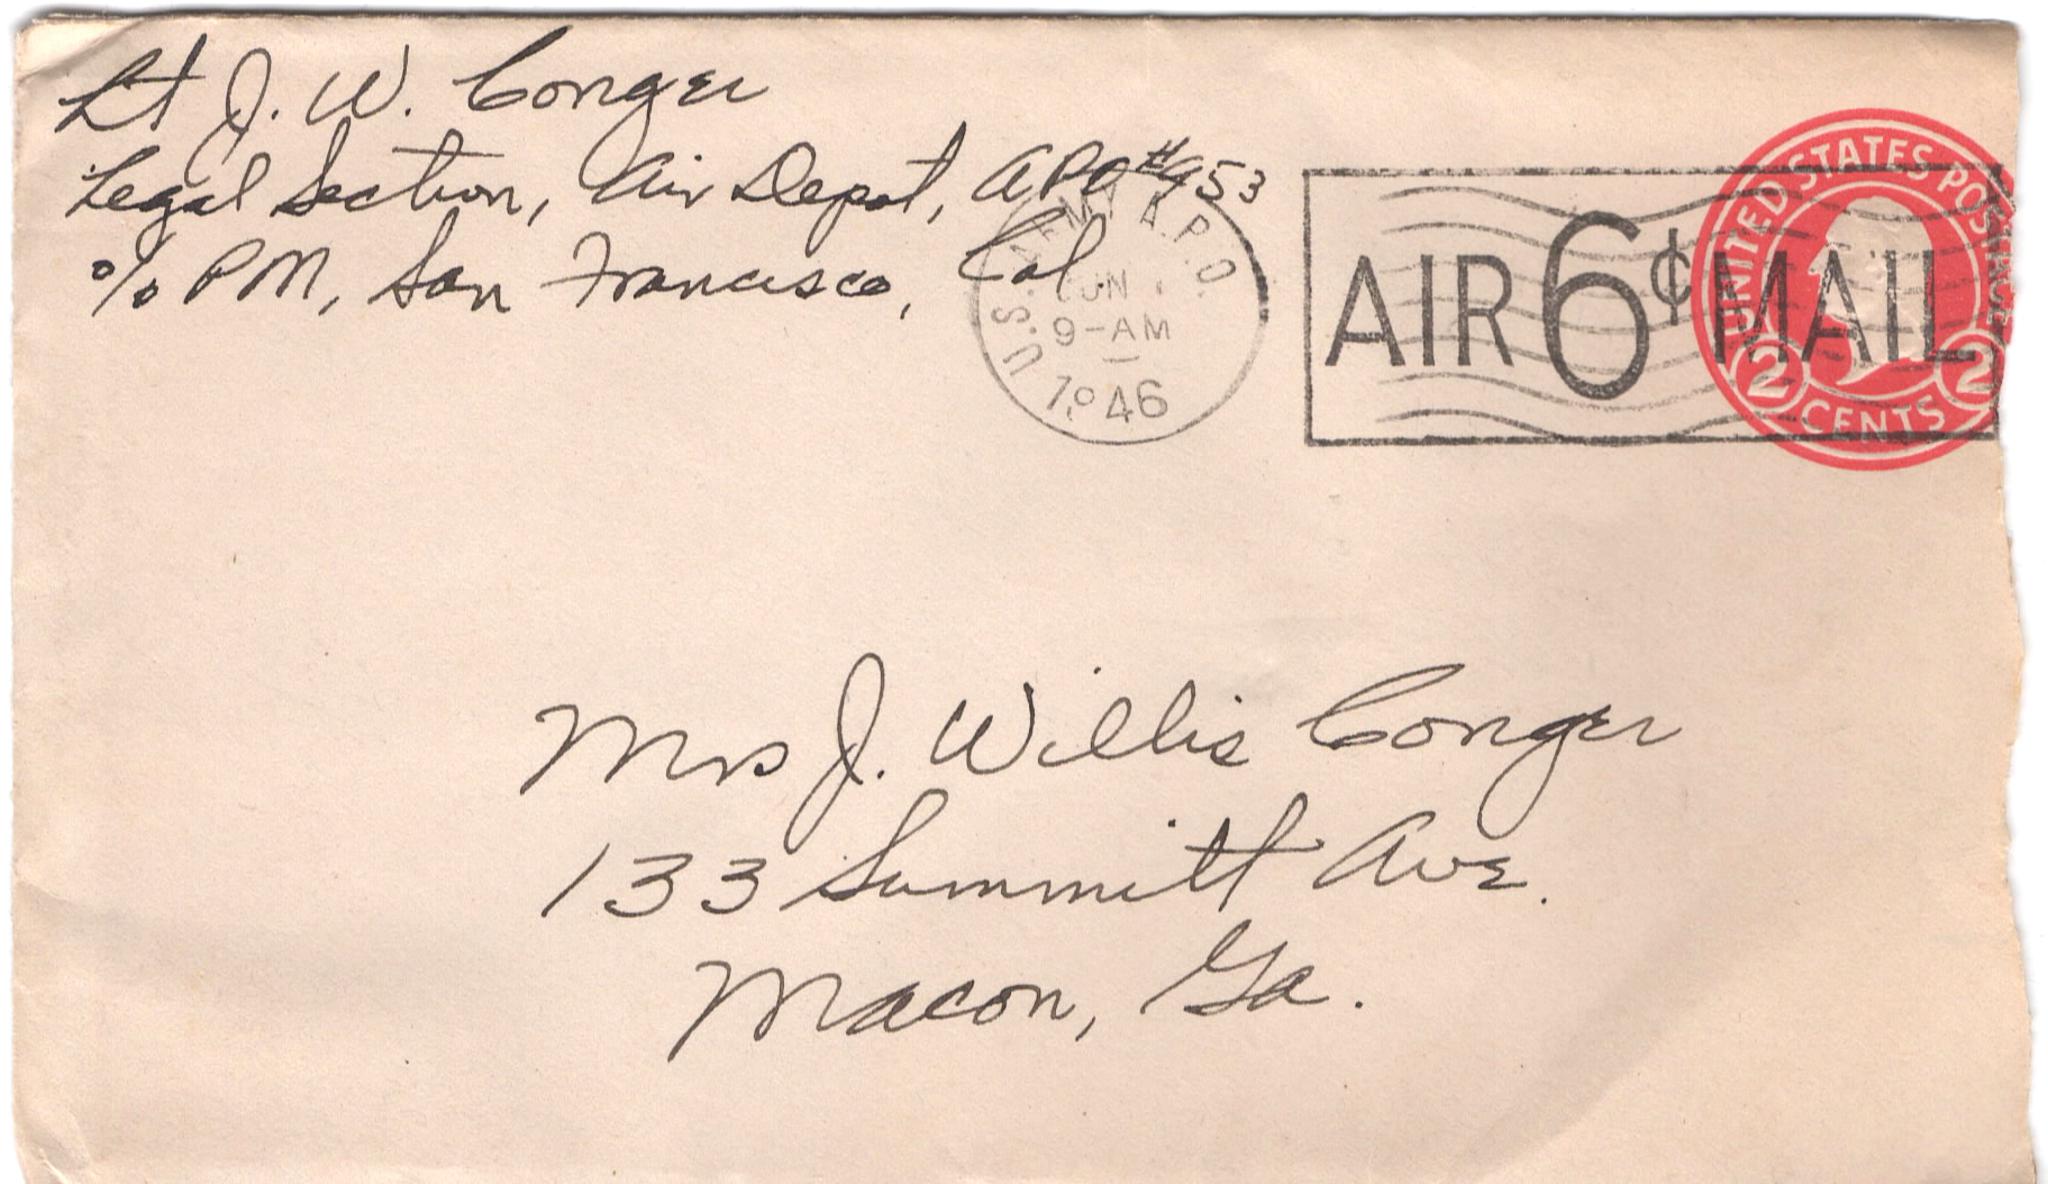 Lt J. W. Conger
Legal Section, Air Depot, APO #953
℅ PM, San Francisco, Cal.
U.S. ARMY A.P.O.
JUN
9-AM
1946
AIR 6¢ MAIL
UNITED STATES POSTAGE
2 2
CENTS
Mrs J. Willis Conger
133 Summitt Ave.
Macon, Ga.